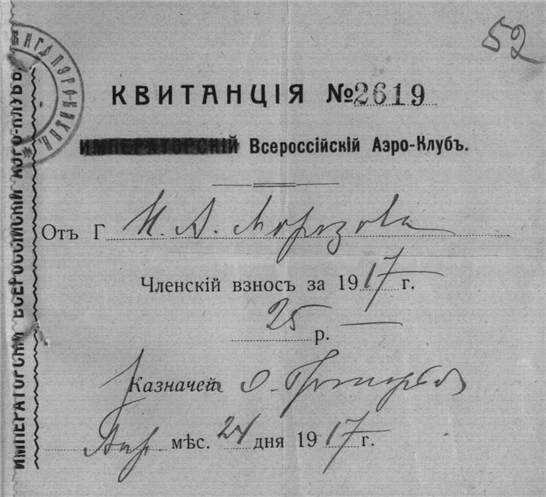 52
КВИТАНЦІЯ №2619
ИМПЕРАТОРСКІЙ Всероссійскій Аэро-Клубъ.
Отъ Г Н. А. Морозова
Членскій взносъ за 1917 г.
25 р. —
Казначей
Апр. мѣс. 24 дня 1917 г.
ИМПЕРАТОРСКІЙ ВСЕРОССІЙСКІЙ АЭРО-КЛУБЪ